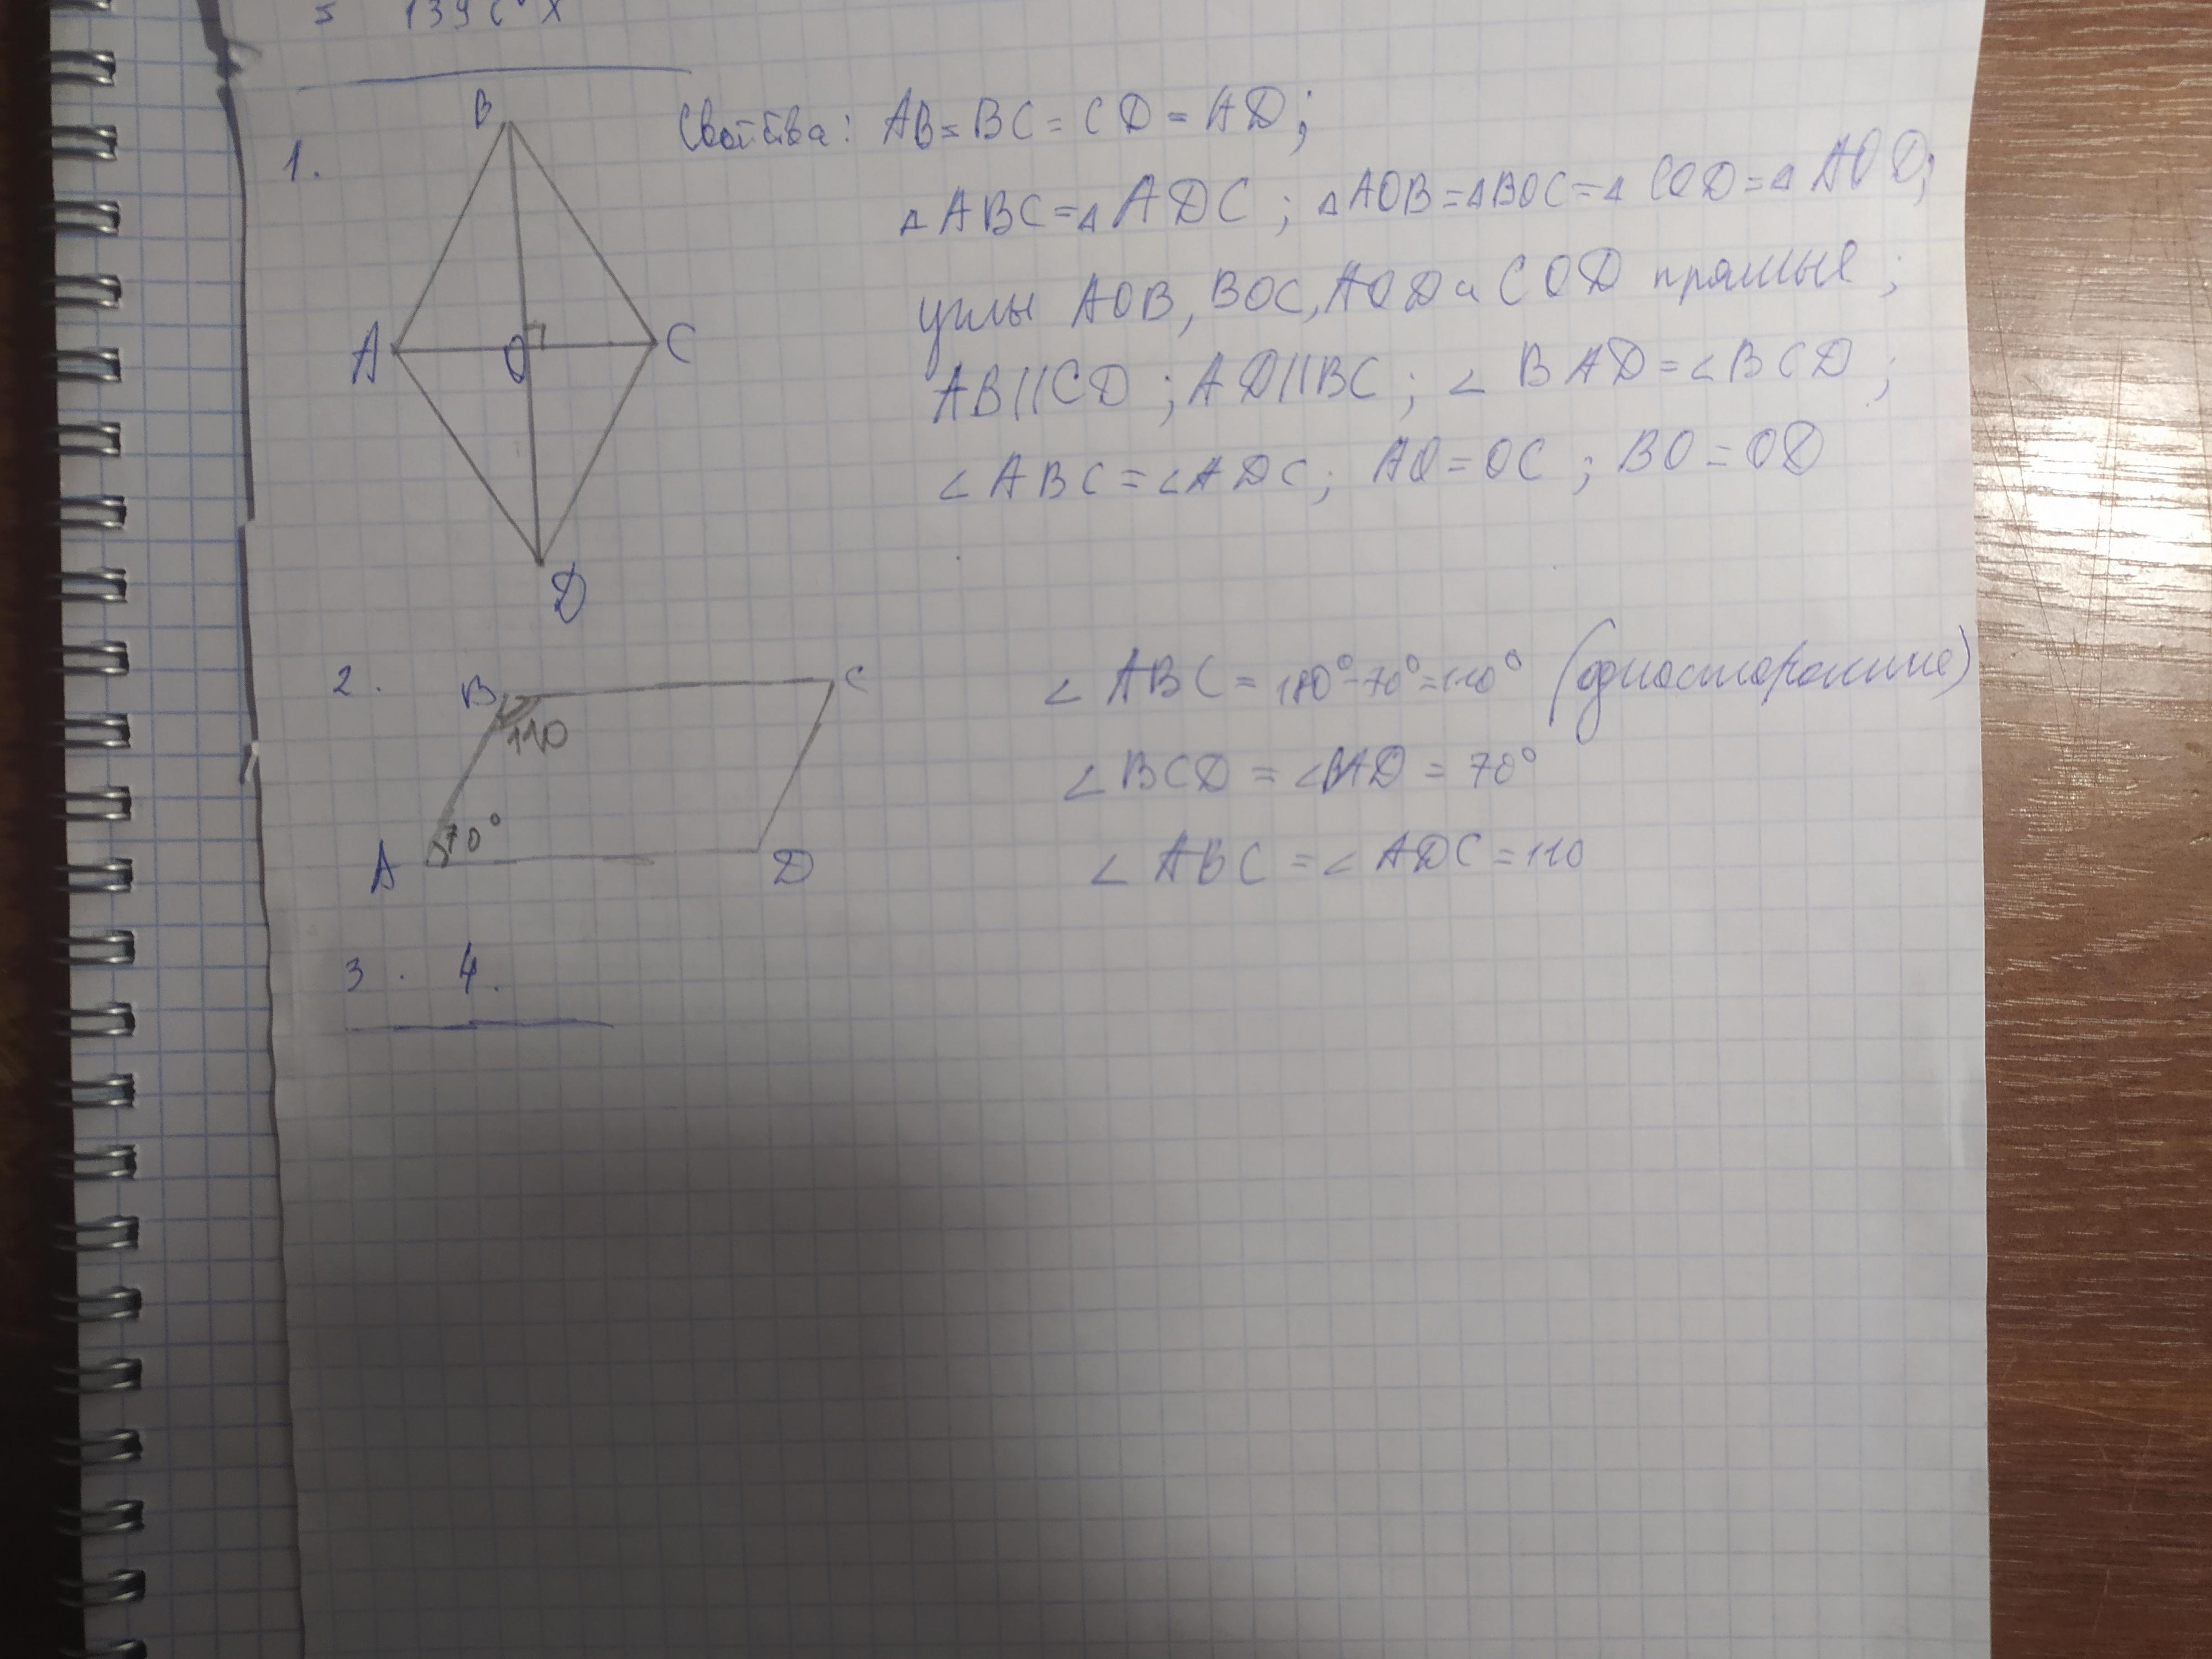 1.
B
A
O
C
D
Свойства: AB=BC=CD=AD;
△ABC=△ADC; △AOB=△BOC=△COD=△AOD;
углы AOB, BOC, AOD и COD прямые;
AB||CD; AD||BC; ∠BAD=∠BCD;
∠ABC=∠ADC; AO=OC; BO=OD
2.
B
C
110
70°
A
D
∠ABC=180°-70°=110° (односторонние)
∠BCD=∠BAD=70°
∠ABC=∠ADC=110
3. 4.